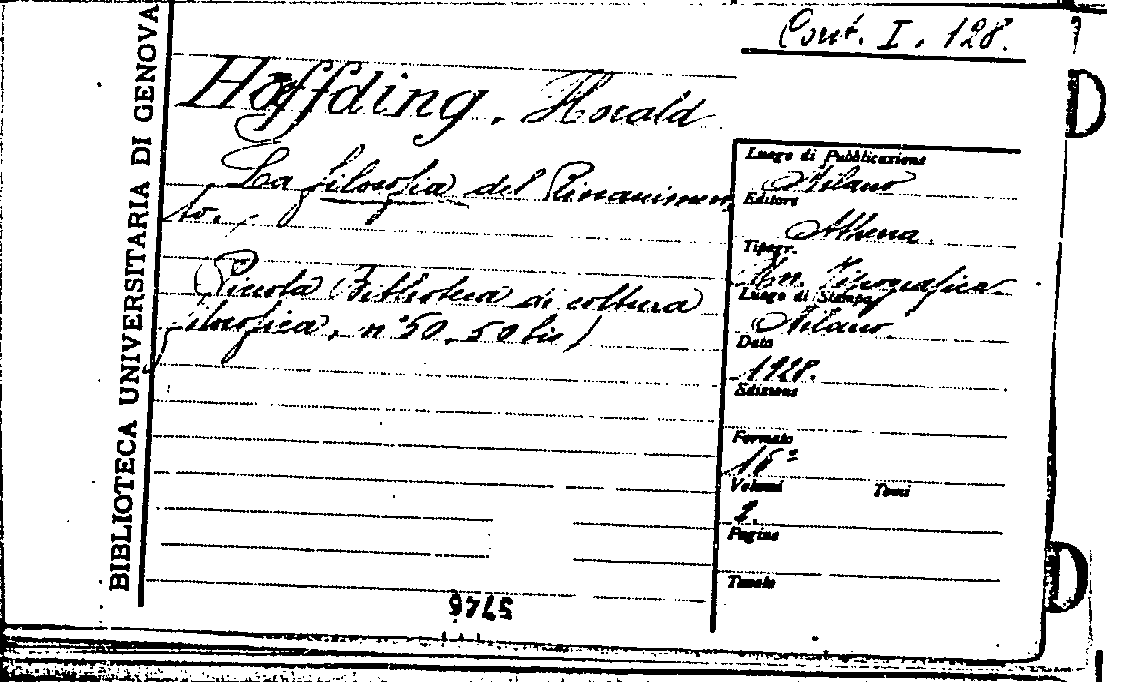 BIBLIOTECA UNIVERSITARIA DI GENOVA
Cont. I. 128.
Höffding, Harald
La filosofia del Rinascimen
to.
(Piccola Biblioteca di coltura
filosofica, n° 50, 50 bis)
Luogo di Pubblicazione
Milano
Editore
Athena
Tipogr.
An. Tipografica
Luogo di Stampa
Milano
Data
1928.
Edizione
Formato
16°
Volumi Tomi
Pagine
Tavole
5746